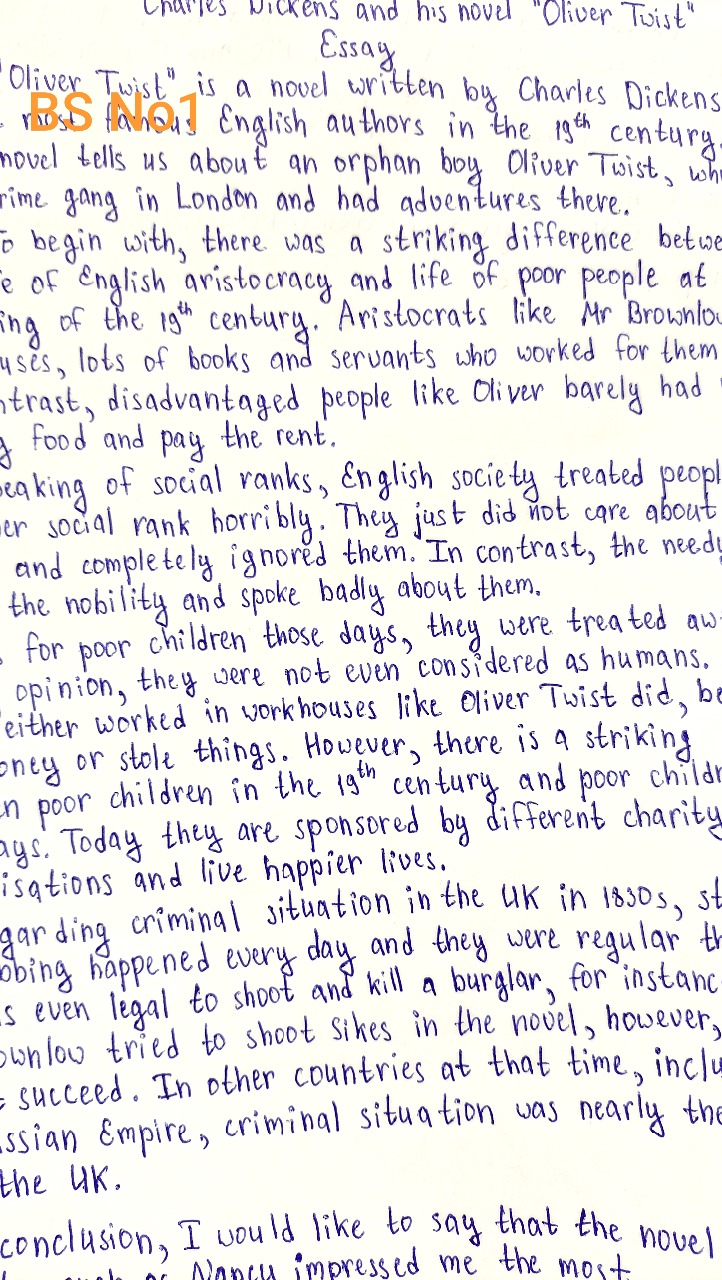 Charles Dickens and his novel "Oliver Twist"
Essay
"Oliver Twist" is a novel written by Charles Dickens
BS No1
most famous English authors in the 19th century.
novel tells us about an orphan boy Oliver Twist, wh
rime gang in London and had adventures there.
o begin with, there was a striking difference betwe
e of English aristocracy and life of poor people at
ing of the 19th century. Aristocrats like Mr Brownlow
uses, lots of books and servants who worked for them
ntrast, disadvantaged people like Oliver barely had
g food and pay the rent.
peaking of social ranks, English society treated peopl
er social rank horribly. They just did not care about
and completely ignored them. In contrast, the needy
the nobility and spoke badly about them.
for poor children those days, they were treated aw
opinion, they were not even considered as humans.
either worked in workhouses like Oliver Twist did, be
oney or stole things. However, there is a striking
en poor children in the 19th century and poor childr
ays. Today they are sponsored by different charity
isations and live happier lives.
garding criminal situation in the UK in 1830s, st
obing happened every day and they were regular th
s even legal to shoot and kill a burglar, for instanc
ownlow tried to shoot Sikes in the novel, however,
succeed. In other countries at that time, inclu
ssian Empire, criminal situation was nearly the
the UK.
conclusion, I would like to say that the novel
such as Nancy impressed me the most